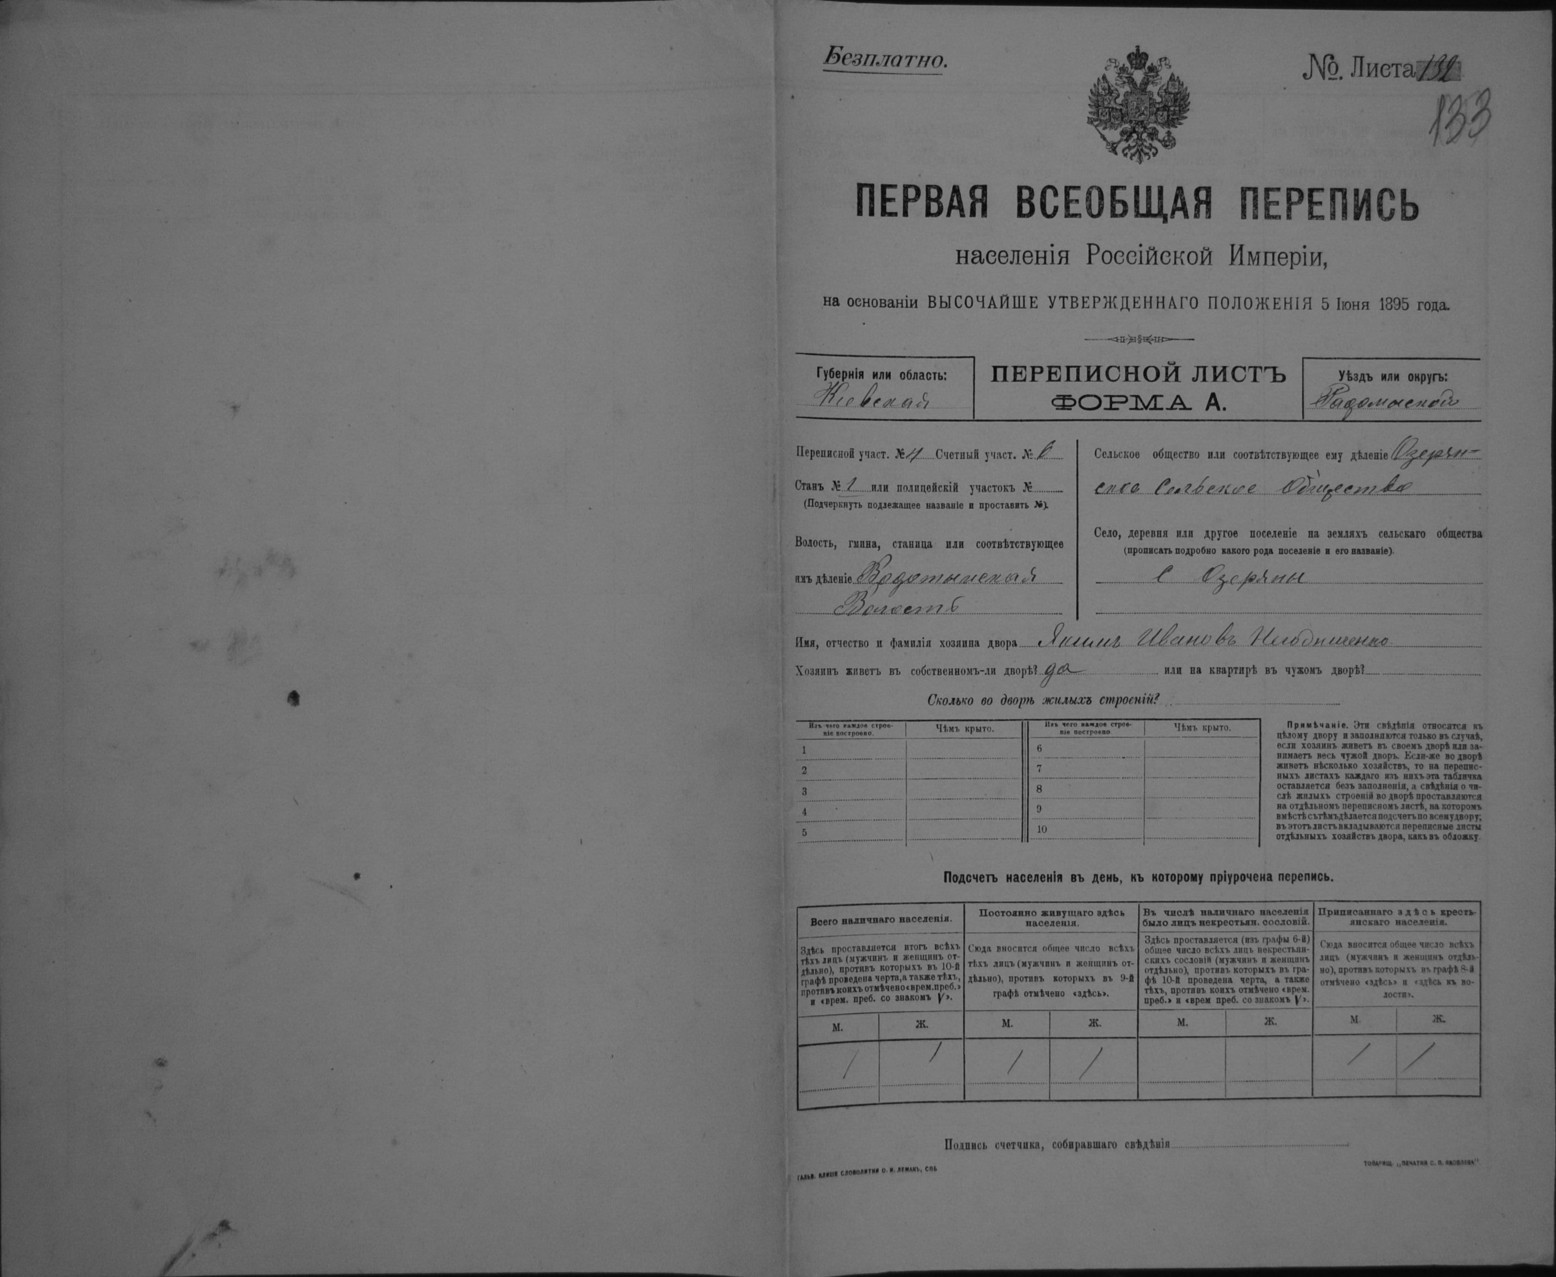 Безплатно.
№. Листа 132
133
ПЕРВАЯ ВСЕОБЩАЯ ПЕРЕПИСЬ
населенія Россійской Имперіи,
на основаніи ВЫСОЧАЙШЕ УТВЕРЖДЕННАГО ПОЛОЖЕНІЯ 5 Іюня 1895 года.
Губернія или область:
Кіевская
ПЕРЕПИСНОЙ ЛИСТЪ
ФОРМА А.
Уѣздъ или округъ:
Радомыской
Переписной участ. № 4 Счетный участ. № 6
Станъ № 1 или полицейскій участокъ №
(Подчеркнуть подлежащее названіе и проставить №).
Волость, гмина, станица или соотвѣтствующее
имъ дѣленіе
Волость
Сельское общество или соотвѣтствующее ему дѣленіе Озерян-
ское Сельское Общество
Село, деревня или другое поселеніе на земляхъ сельскаго общества
(прописать подробно какого рода поселеніе и его названіе).
С Озеряны
Имя, отчество и фамилія хозяина двора Якимъ Ивановъ
Хозяинъ живетъ въ собственномъ-ли дворѣ? да или на квартирѣ въ чужомъ дворѣ?
Сколько во дворѣ жилыхъ строеній?
Изъ чего каждое строе-
ніе построено.
Чѣмъ крыто.
1
2
3
4
5
Изъ чего каждое строе-
ніе построено
Чѣмъ крыто.
6
7
8
9
10
Примѣчаніе. Эти свѣдѣнія относятся къ
цѣлому двору и заполняются только въ случаѣ,
если хозяинъ живетъ въ своемъ дворѣ или за-
нимаетъ весь чужой дворъ. Если-же во дворѣ
живетъ нѣсколько хозяйствъ, то на перепис-
ныхъ листахъ каждаго изъ нихъ эта табличка
оставляется безъ заполненія, а свѣдѣнія о чи-
слѣ жилыхъ строеній во дворѣ проставляются
на отдѣльномъ переписномъ листѣ, на которомъ
вмѣстѣ съ тѣмъ дѣлается подсчетъ по всему двору;
въ этотъ листъ вкладываются переписные листы
отдѣльныхъ хозяйствъ двора, какъ въ обложку.
Подсчетъ населенія въ день, къ которому пріурочена перепись.
Всего наличнаго населенія.
Здѣсь проставляется итогъ всѣхъ
тѣхъ лицъ (мужчинъ и женщинъ от-
дѣльно), противъ которыхъ въ 10-й
графѣ проведена черта, а также тѣхъ,
противъ коихъ отмѣчено «врем. преб.»
и «врем. преб. со знакомъ V».
М. Ж.
1 1
Постоянно живущаго здѣсь
населенія.
Сюда вносится общее число всѣхъ
тѣхъ лицъ (мужчинъ и женщинъ от-
дѣльно), противъ которыхъ въ 9-й
графѣ отмѣчено «здѣсь».
М. Ж.
1 1
Въ числѣ наличнаго населенія
было лицъ некрестьян. сословій.
Здѣсь проставляется (изъ графы 6-й)
общее число всѣхъ лицъ некрестьян-
скихъ сословій (мужчинъ и женщинъ
отдѣльно), противъ которыхъ въ гра-
фѣ 10-й проведена черта, а также
тѣхъ, противъ коихъ отмѣчено «врем.
преб.» и «врем преб. со знакомъ V».
М. Ж.
Приписаннаго здѣсь кресть-
янскаго населенія.
Сюда вносится общее число всѣхъ
лицъ (мужчинъ и женщинъ отдѣль-
но), противъ которыхъ въ графѣ 8-й
отмѣчено «здѣсь» и «здѣсь въ во-
лости».
М. Ж.
1 1
Подпись счетчика, собиравшаго свѣдѣнія
ГАЛЬВ. КЛИШЕ СЛОВОЛИТНИ О. И. ЛЕМАНЪ, СПБ.